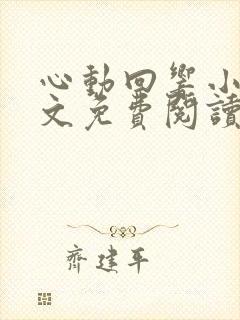 心動回響小
文免費閱讀
齊建平